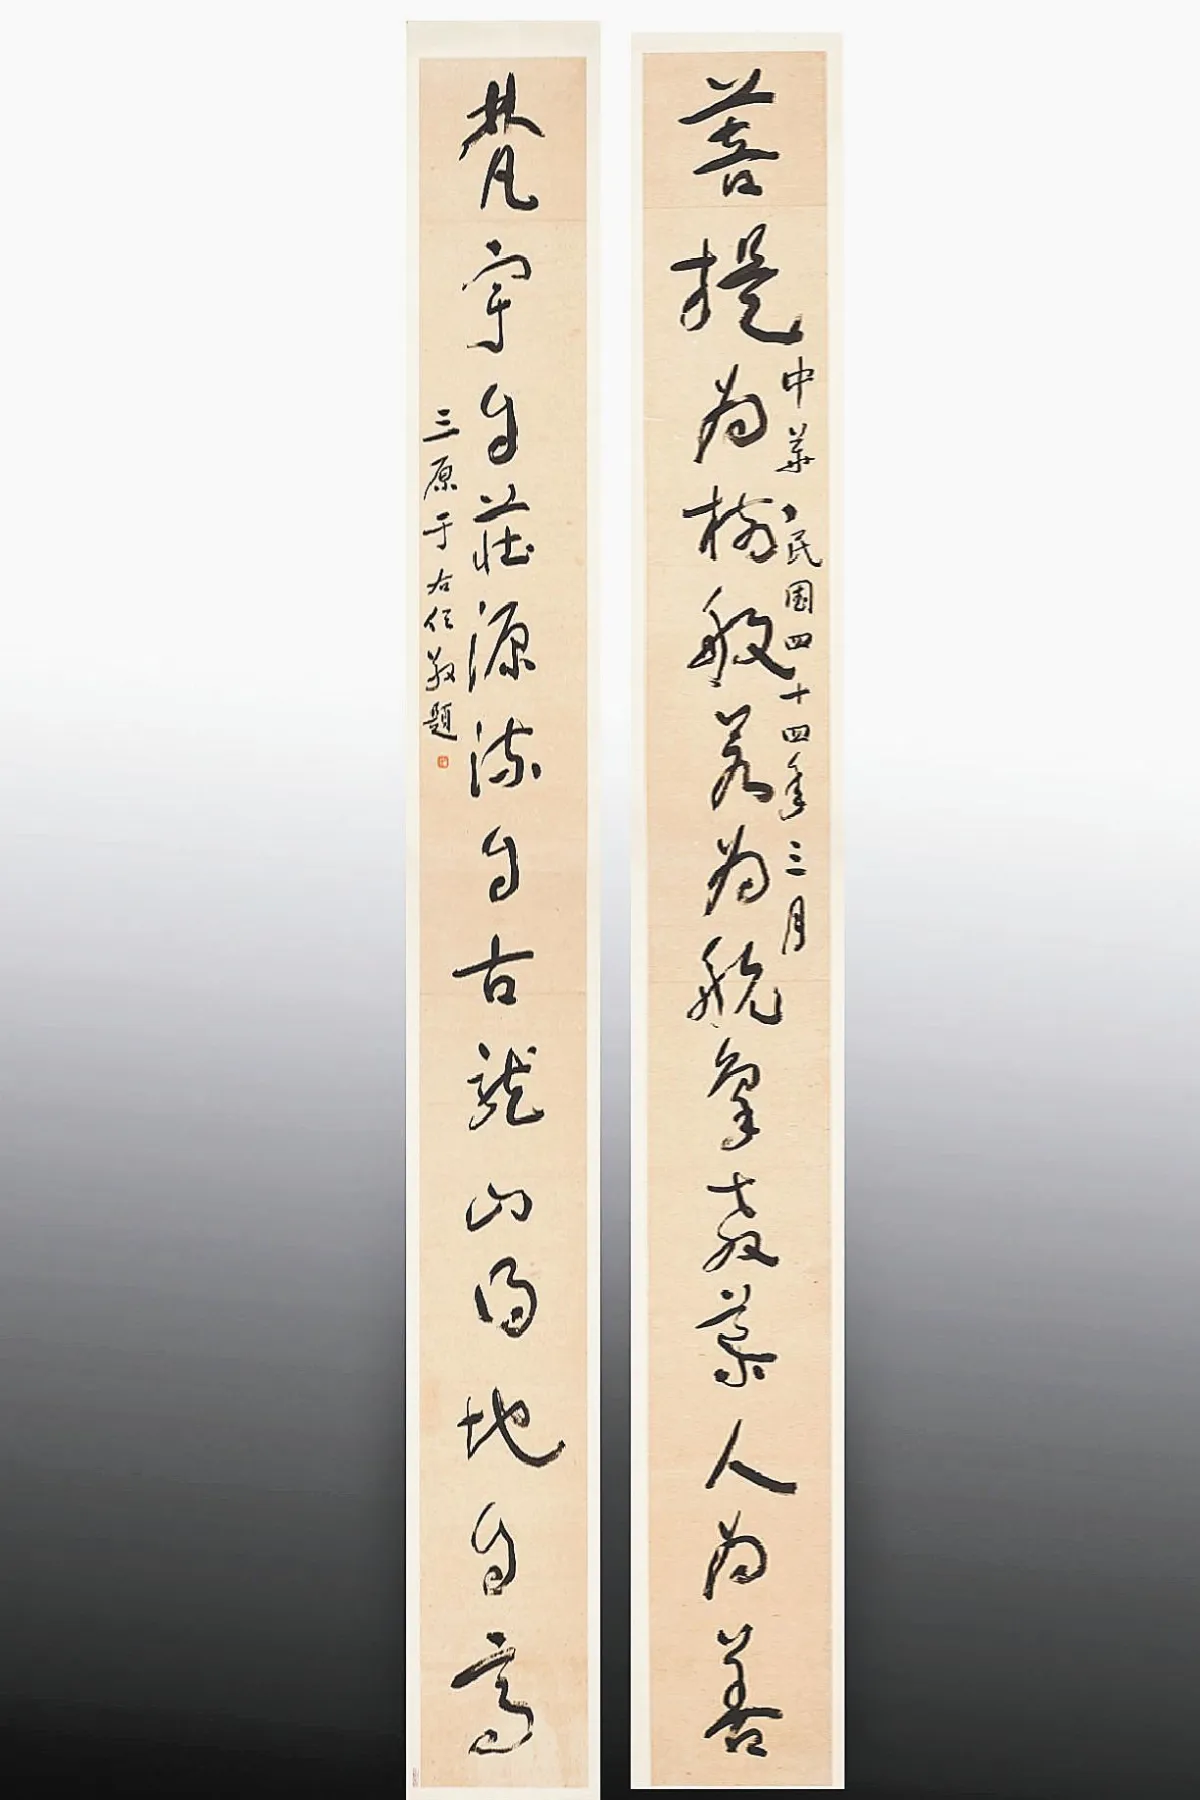 菩提為樹般若為航象教慕人為善
中華民国四十四年三月
梵宇自莊源流自古龍山得地自高
三原于右任敬題